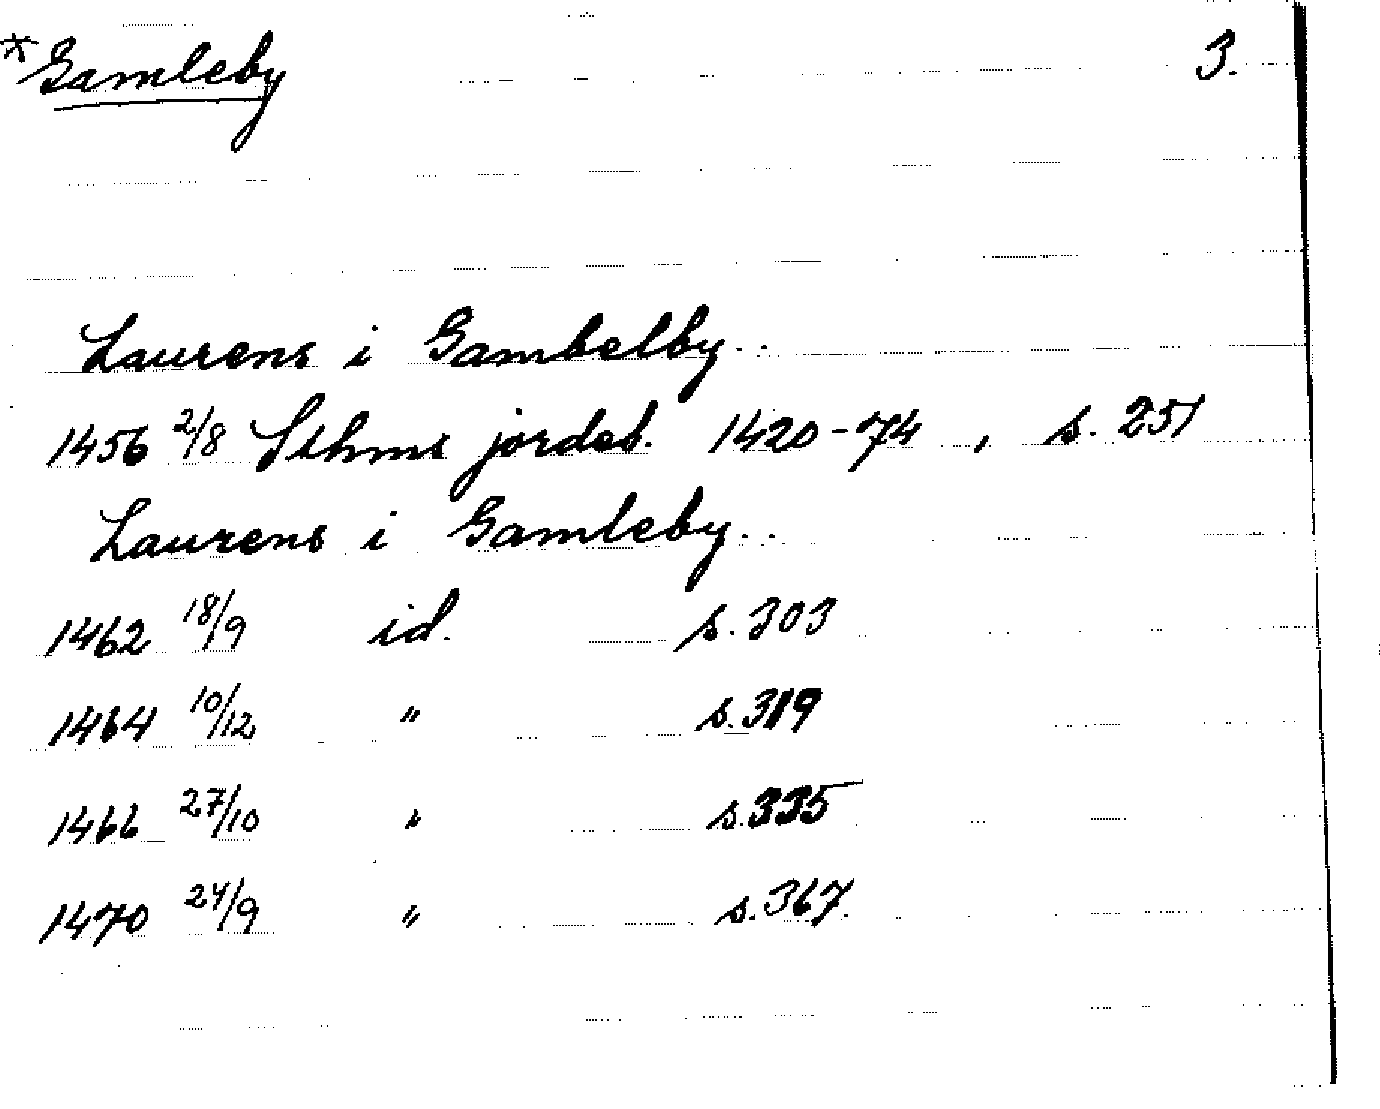 *Gamleby 3.
Laurens i Gambelby..
1456 2/8 Sthms jordeb. 1420-74, s. 251
Laurens i Gamleby..
1462 18/9 id. s. 303
1464 10/12 " s. 319
1466 27/10 " s. 335
1470 24/9 " s. 367.